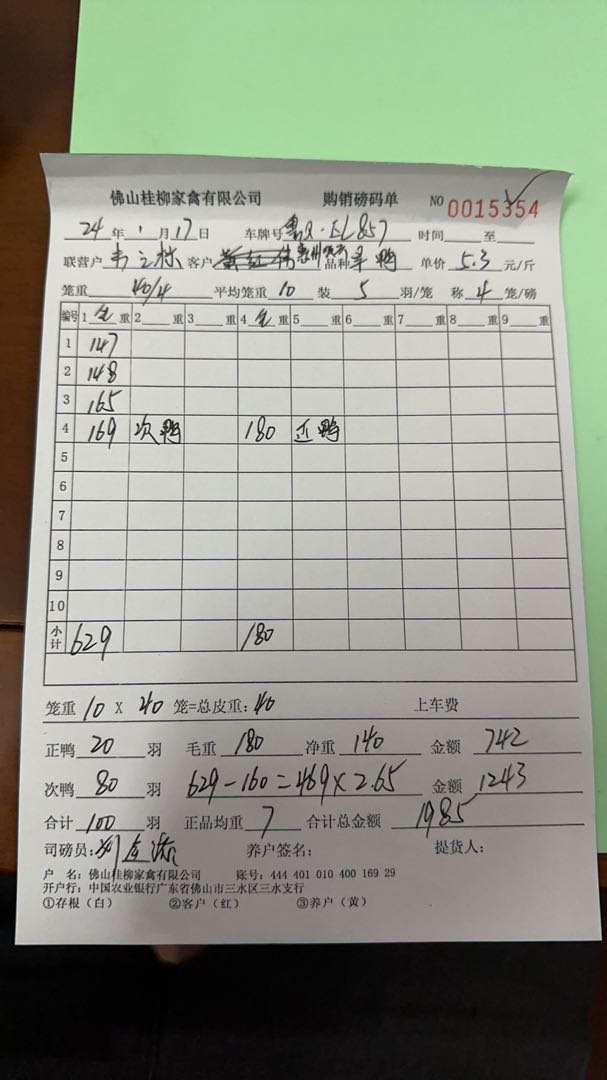 佛山桂柳家禽有限公司 购销磅码单 NO 0015354
24 年 1 月 17 日 车牌号 粤Q·EL857 时间 至
联营户 韦 客户 品种 鸭 单价 5.3 元/斤
笼重 40/4 平均笼重 10 装 5 羽/笼 称 4 笼/磅
编号 1 毛 重 2 重 3 重 4 毛 重 5 重 6 重 7 重 8 重 9 重
1 147
2 148
3 165
4 169 次鸭 180 正鸭
5
6
7
8
9
10
小计 629 180
笼重 10 X 40 笼=总皮重: 40 上车费
正鸭 20 羽 毛重 180 净重 140 金额 742
次鸭 80 羽 629-160=469×2.65 金额 1243
合计 100 羽 正品均重 7 合计总金额 1985
司磅员: 刘 养户签名: 提货人:
户 名: 佛山桂柳家禽有限公司 账号: 444 401 010 400 169 29
开户行: 中国农业银行广东省佛山市三水区三水支行
①存根（白） ②客户（红） ③养户（黄）